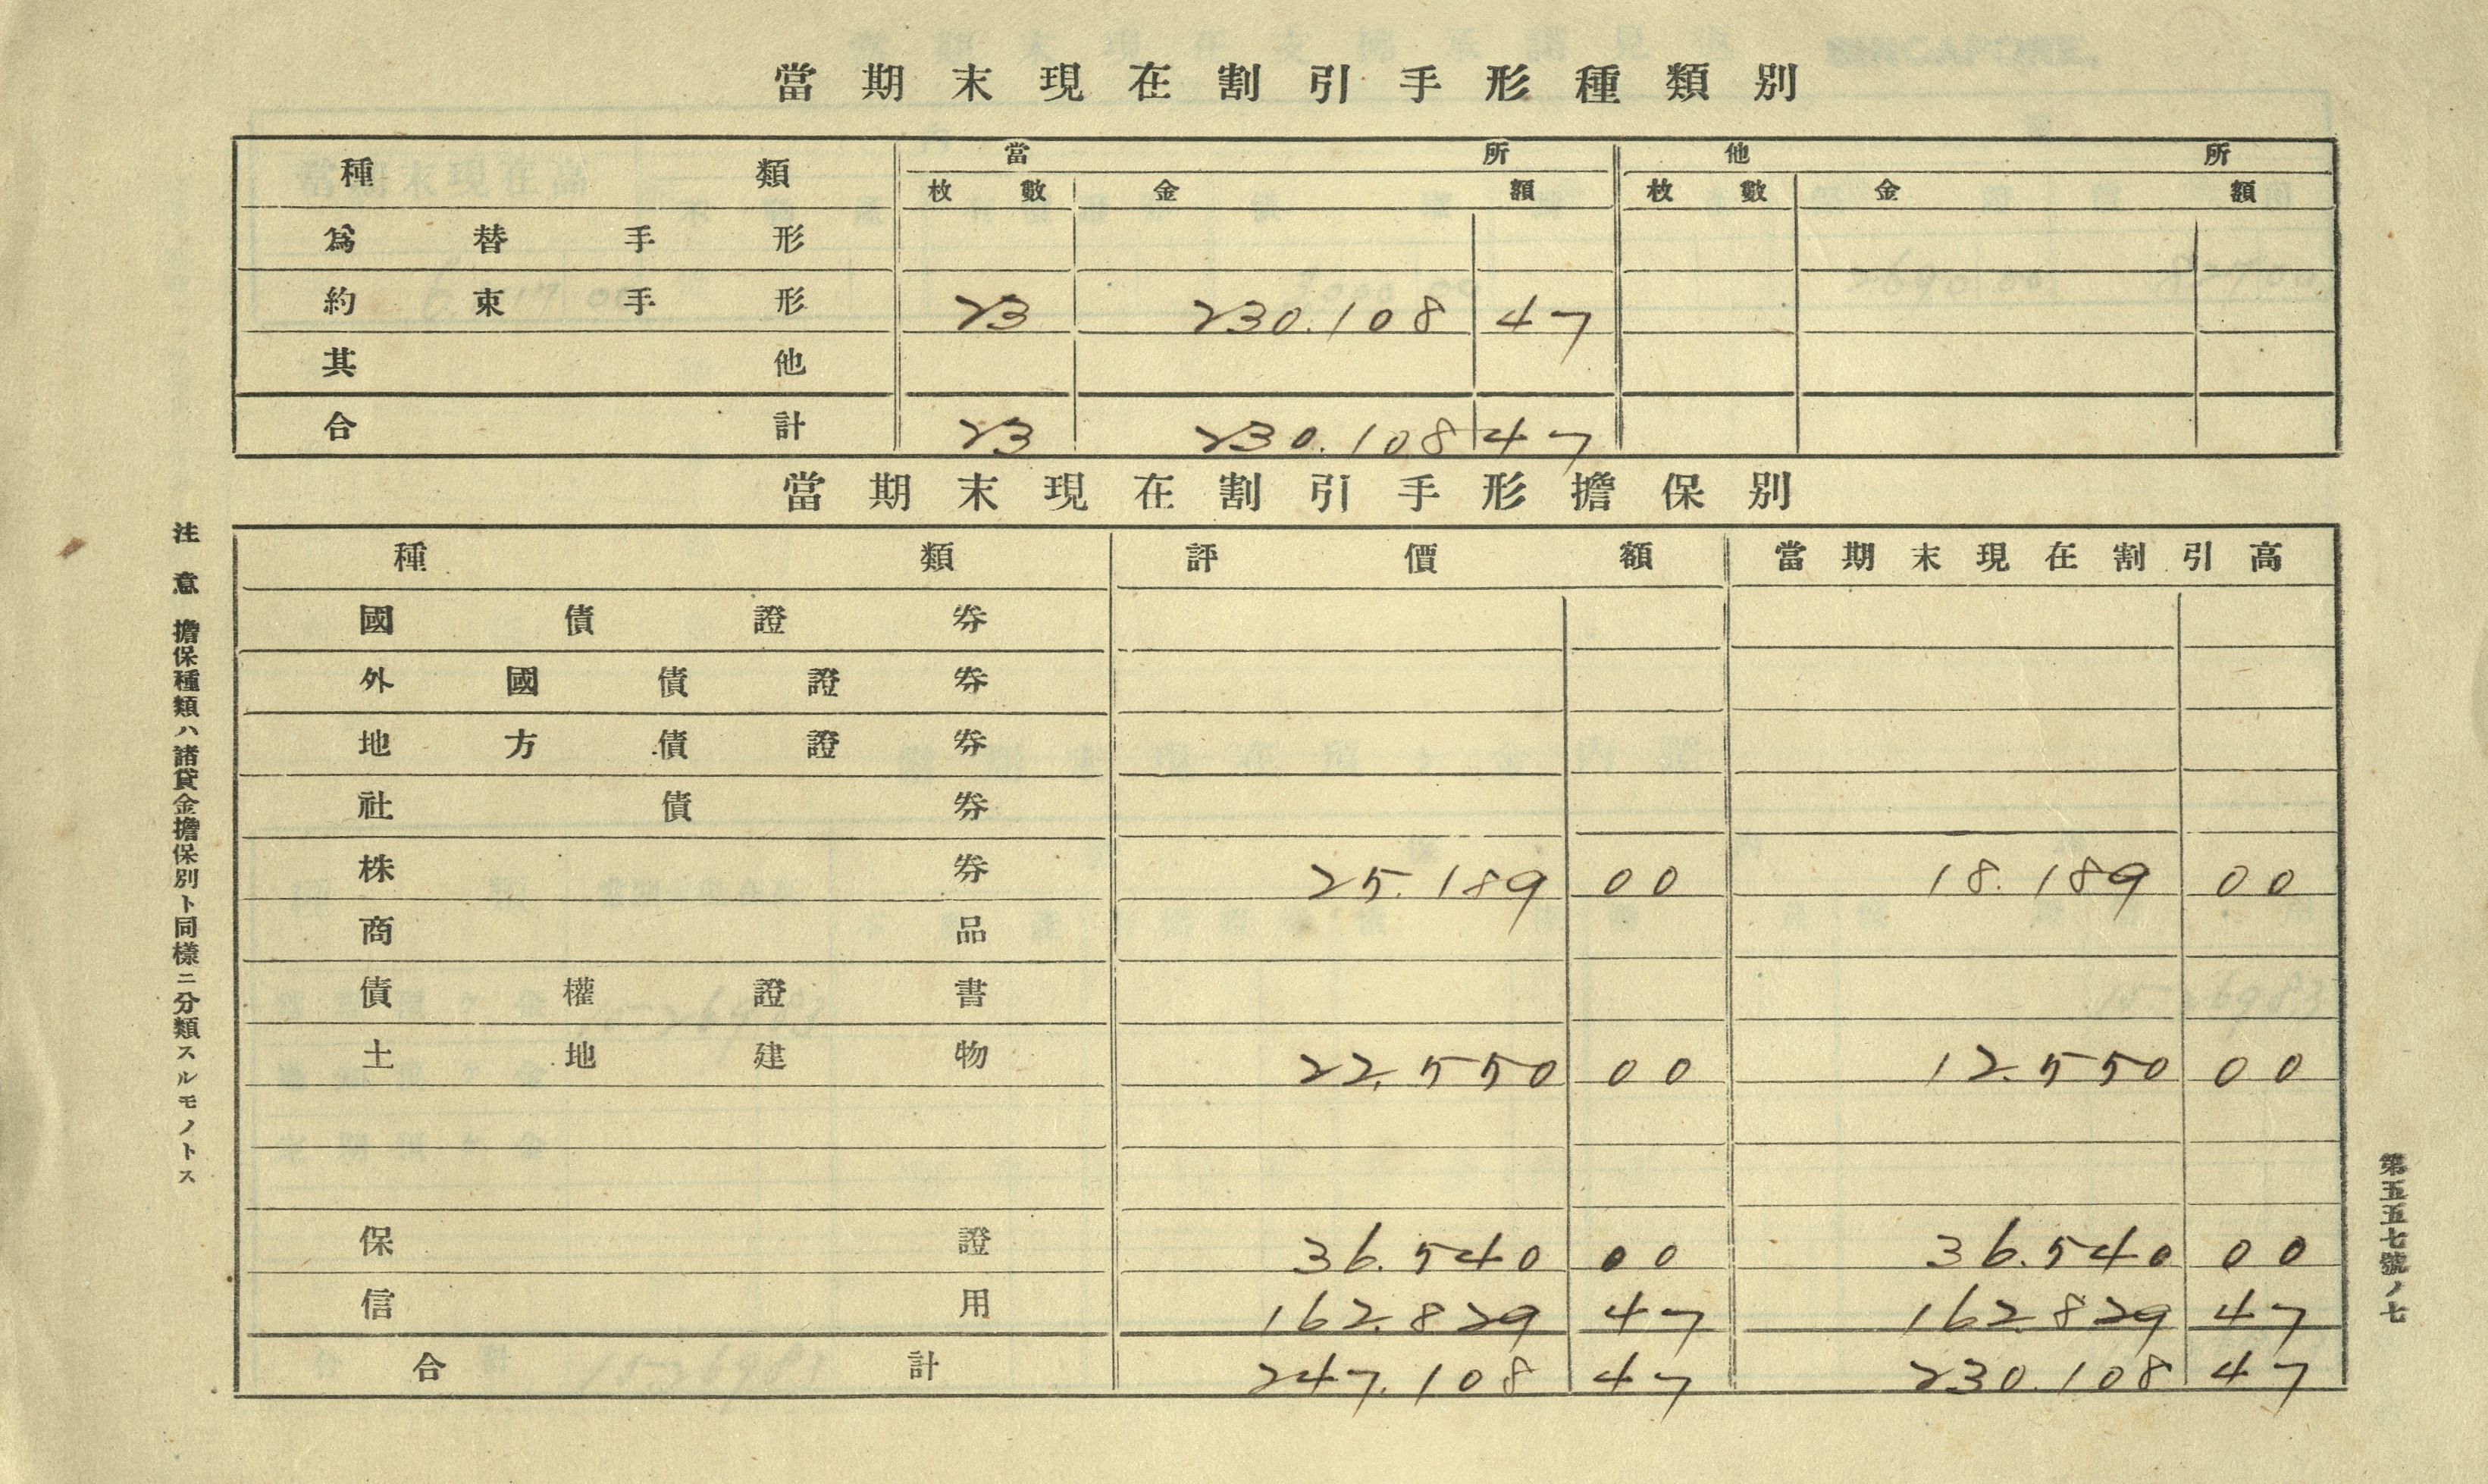 當期末現在割引手形種類別
種類 當所 他所
枚數 金額 枚數 金額
爲替手形
約束手形 23 230.108 47
其他
合計 23 230.108 47
當期末現在割引手形擔保別
種類 評價額 當期末現在割引高
國債證券
外國債證券
地方債證券
社債券
株券 25.189 00 18.189 00
商品
債權證書
土地建物 22.550 00 12.550 00
保證 36.540 00 36.540 00
信用 162.829 47 162.829 47
合計 247.108 47 230.108 47
注意 擔保種類ハ諸貸金擔保別ト同樣ニ分類スルモノトス
第五五七號ノ七